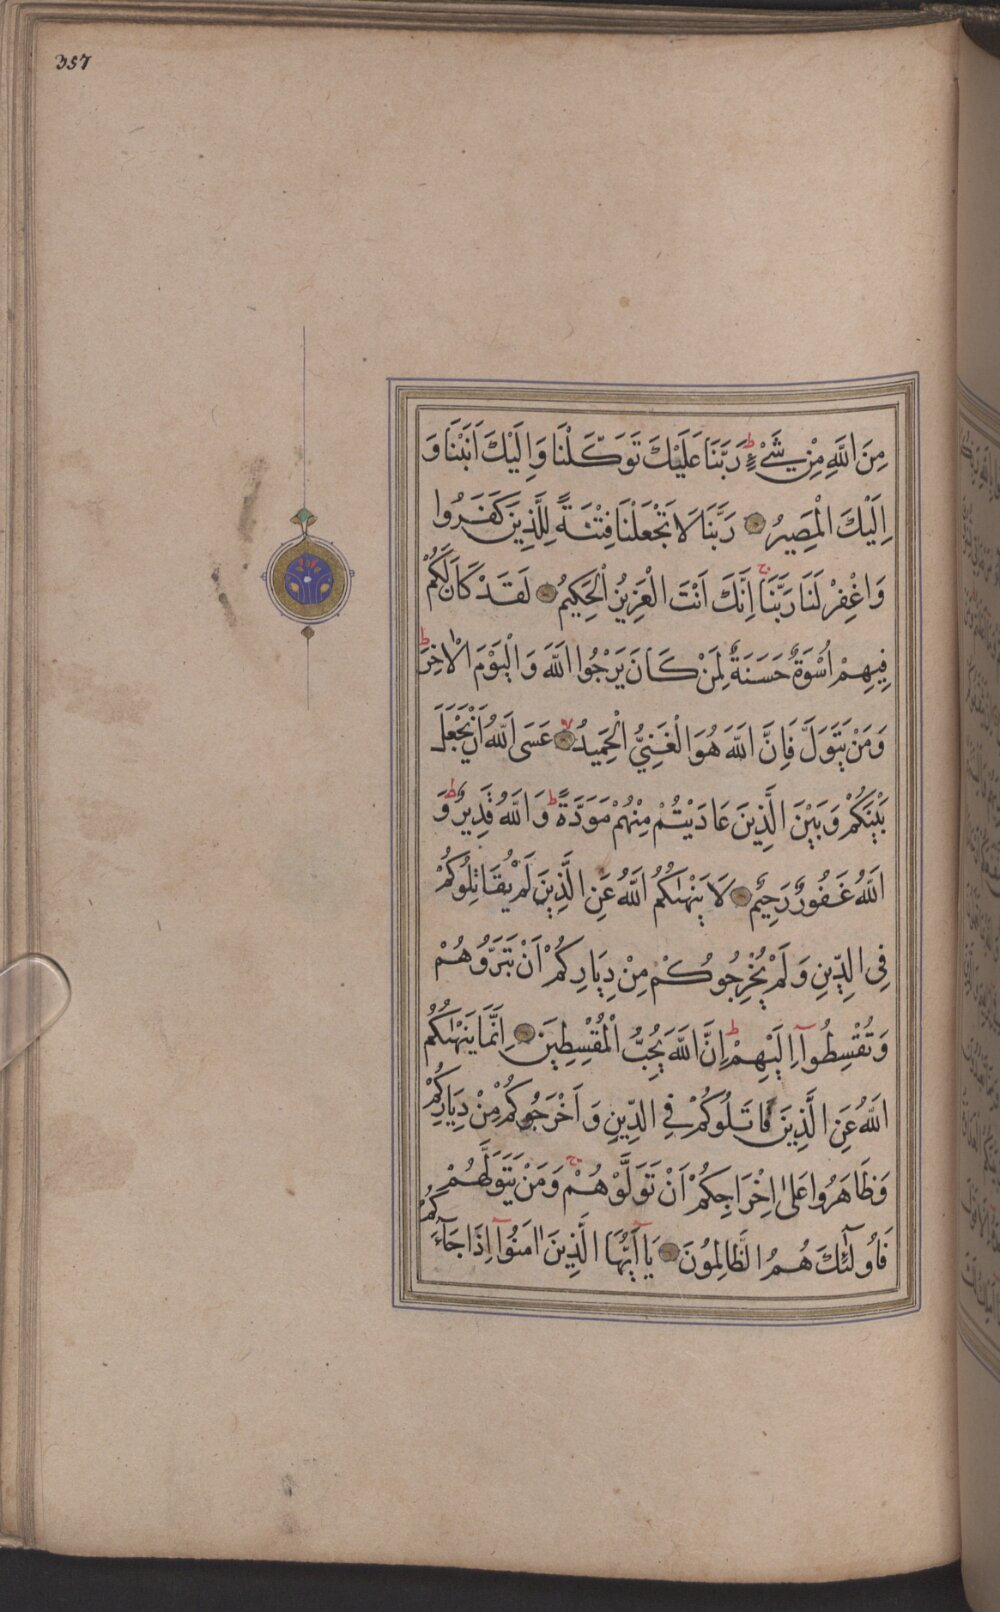 357
مِنَ اللَّهِ مِنْ شَيْءٍ ط رَبَّنَا عَلَيْكَ تَوَكَّلْنَا وَاِلَيْكَ اَنَبْنَا وَ
اِلَيْكَ الْمَصِيرُ رَبَّنَا لَا تَجْعَلْنَا فِتْنَةً لِلَّذِينَ كَفَرُوا
وَاغْفِرْ لَنَا رَبَّنَا ج اِنَّكَ اَنْتَ الْعَزِيزُ الْحَكِيمُ لَقَدْ كَانَ لَكُمْ
فِيهِمْ اُسْوَةٌ حَسَنَةٌ لِمَنْ كَانَ يَرْجُوا اللَّهَ وَالْيَوْمَ الْاٰخِرَ ط
وَمَنْ يَتَوَلَّ فَاِنَّ اللَّهَ هُوَ الْغَنِيُّ الْحَمِيدُ عَسَى اللَّهُ اَنْ يَجْعَلَ
بَيْنَكُمْ وَبَيْنَ الَّذِينَ عَادَيْتُمْ مِنْهُمْ مَوَدَّةً ط وَاللَّهُ قَدِيرٌ ط وَ
اللَّهُ غَفُورٌ رَحِيمٌ لَا يَنْهٰىكُمُ اللَّهُ عَنِ الَّذِينَ لَمْ يُقَاتِلُوكُمْ
فِي الدِّينِ وَلَمْ يُخْرِجُوكُمْ مِنْ دِيَارِكُمْ اَنْ تَبَرُّوهُمْ
وَتُقْسِطُوآ اِلَيْهِمْ ط اِنَّ اللَّهَ يُحِبُّ الْمُقْسِطِينَ اِنَّمَا يَنْهٰىكُمُ
اللَّهُ عَنِ الَّذِينَ قَاتَلُوكُمْ فِي الدِّينِ وَاَخْرَجُوكُمْ مِنْ دِيَارِكُمْ
وَظَاهَرُوا عَلٰى اِخْرَاجِكُمْ اَنْ تَوَلَّوْهُمْ ج وَمَنْ يَتَوَلَّهُمْ
فَاُولٰٓئِكَ هُمُ الظَّالِمُونَ يَآ اَيُّهَا الَّذِينَ اٰمَنُوآ اِذَا جَآءَكُمُ